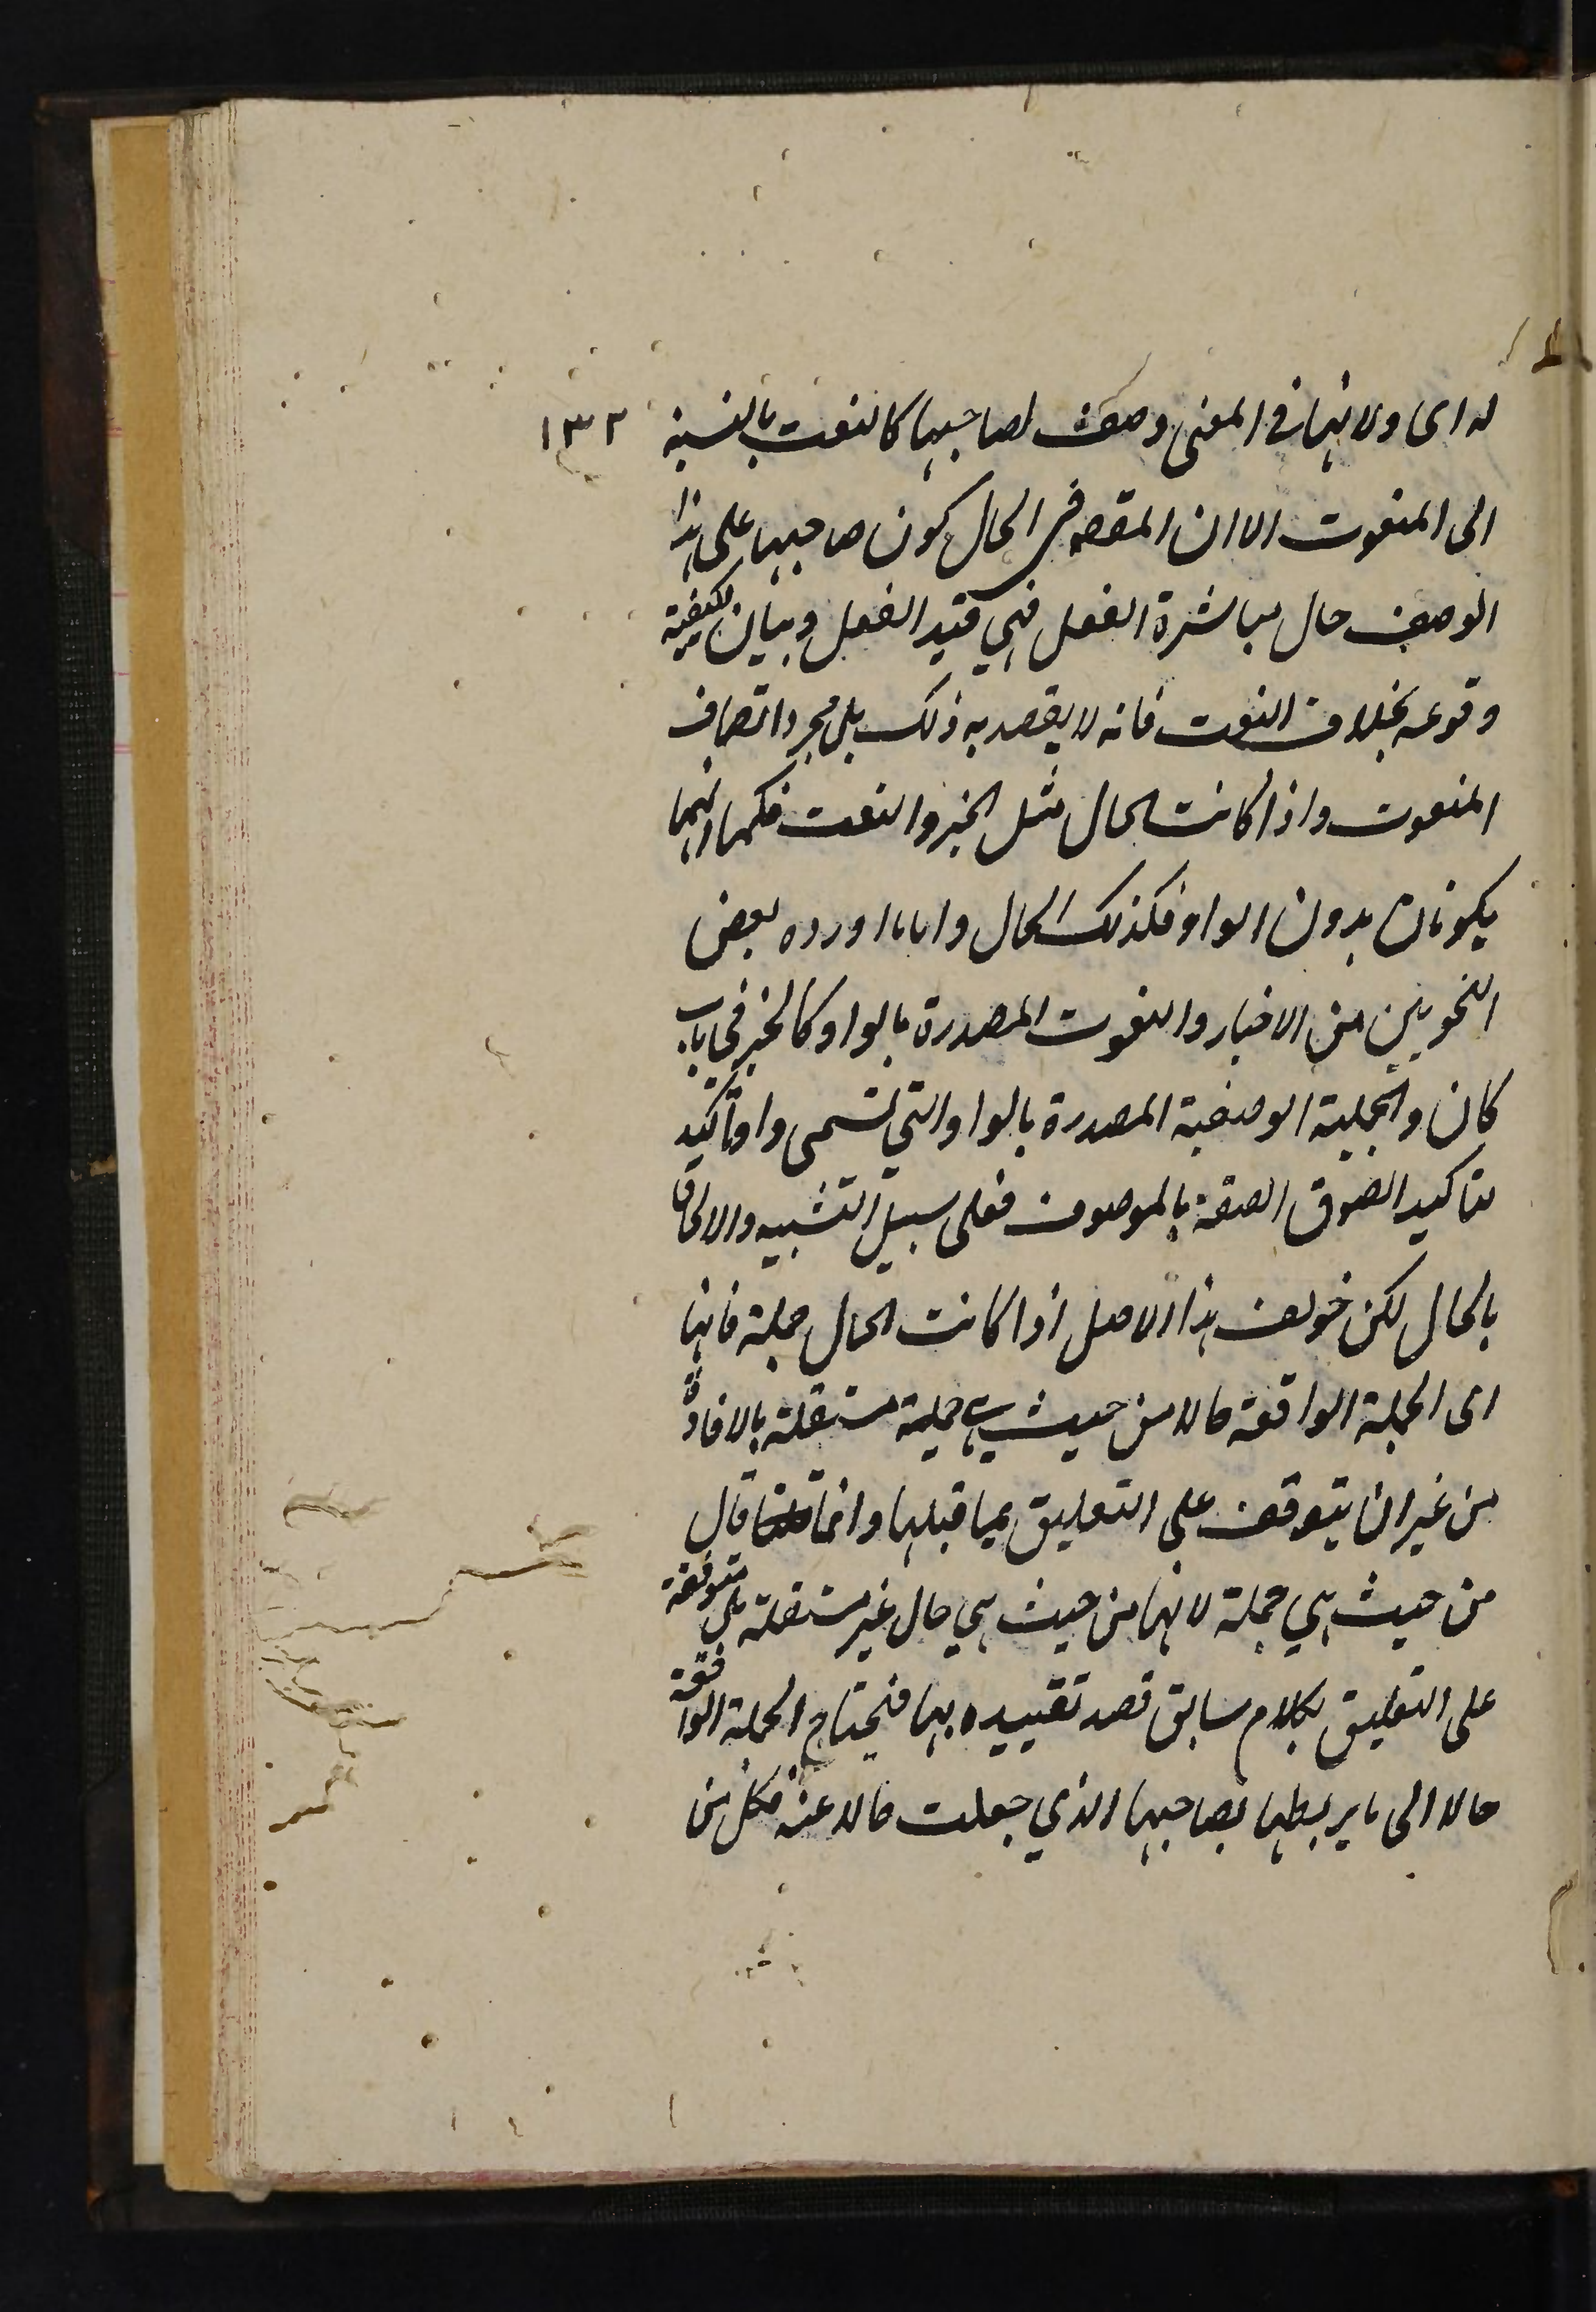 له اى ولانها فى المعنى وصف لصاحبها كالنعت بالنسبة ١٣٢
الى المنعوت الا ان المقصه فى الحال كون صاحبها على هذا
الوصف حال مباشرة الفعل فهي قيد الفعل وبيان لكيفية
وقوعه بخلاف النعت فانه لا يقصد به ذلك بل مجرد اتصاف
المنعوت واذا كانت الحال مثل الخبر والنعت فكما انهما
يكونان بدون الواو فكذلك الحال واما ما اورده بعض
النحويين من الاخبار والنعوت المصدرة بالواو كالخبر في باب
كان والجملة الوصفية المصدرة بالواو التي تسمى واو تأكيد
تاكيد لصوق الصفة بالموصوف فعلى سبيل التشبيه والالحاق
بالحال لكن خولف هذا الاصل اذا كانت الحال جملة فانها
اى الجملة الواقعة حالا من حيث هي جملة مستقلة بالافادة
من غير ان يتوقف على التعليق بما قبلها وانما قال
من حيث هي جملة لانها من حيث هي حال غير مستقلة بل متوقفة
على التعليق بكلام سابق قصد تقييده بها فيحتاج الجملة الواقعة
حالا الى ما يربطها بصاحبها الذي جعلت حالا عنه فكل من